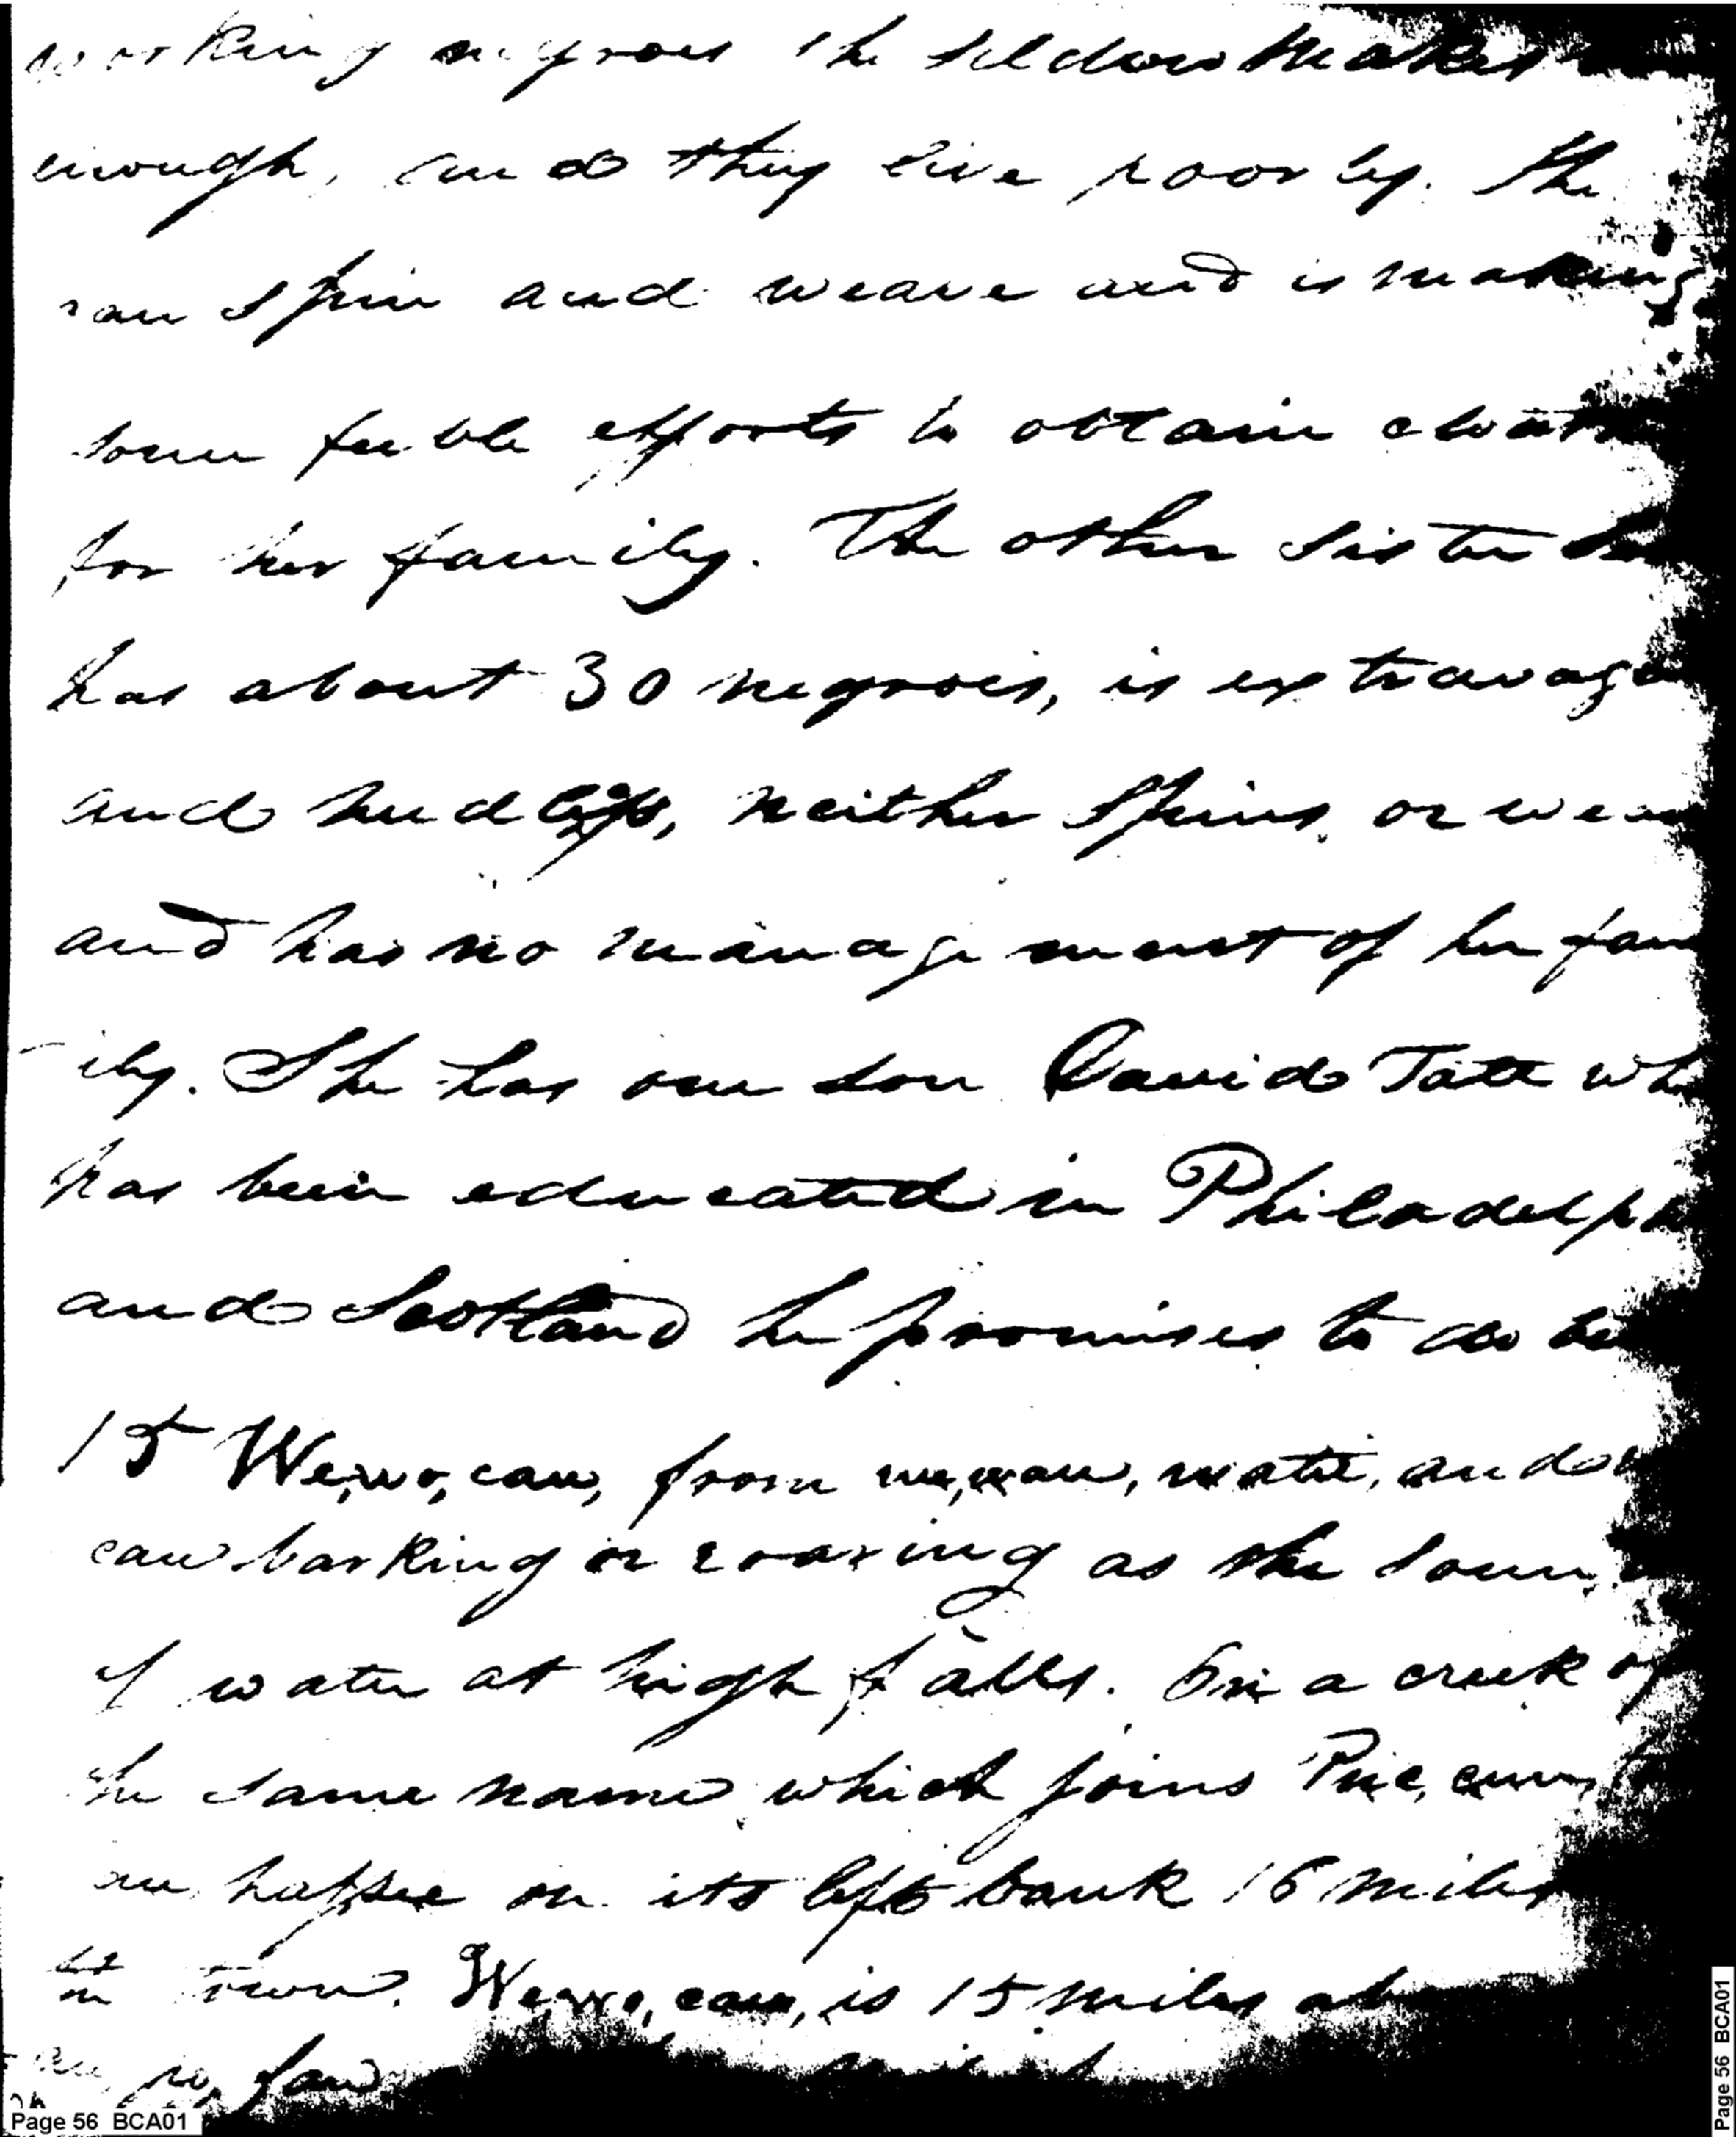 working negroes she seldom makes
enough, and they live poorly. She
can spin and weave and is making
some feeble efforts to obtain cloath
for her family. The other sister
has about 30 negroes, is extravaga
and heedless, neither spins or wea
and has no management of her fam
-ily. She has one son David Tate wh
has been educated in Philadelph
and Scotland he promises to do be
15 We,wo,cau, from we,wau, water, and
cau barking or roaring as the soun
of water at high falls. On a creek of
the same name which joins Puc,cun,
hatssee on its left bank 16 miles
town. We,wo,cau, is 15 miles ab
Page 56 BCA01
Page 56 BCA01